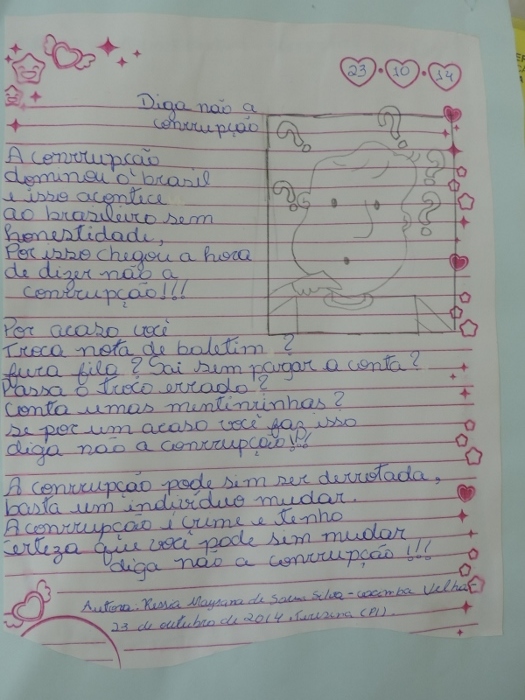 23 • 10 • 14
Diga não a
conrrupção
A conrrupção
dominou o brasil
e isso acontice
ao brasileiro sem
honestidade,
Por isso chegou a hora
de dizer não a
conrrupção!!!
Por acaso você
Troca nota de baletim ?
fura fila ? Sai sem pargar a conta ?
Passa o troco errado ?
Conta umas mintinrinhas ?
se por um acaso você faz isso
diga não a conrrupção!!!
A conrrupção pode sim ser derrotada,
basta um indivíduo mudar.
A conrrupção é crime e tenho
certeza que você pode sim mudar
diga não a conrrupção !!!
Autora: Mayrana de Sousa Silva - Velha
23 de outubro de 2014, Teresina (PI).